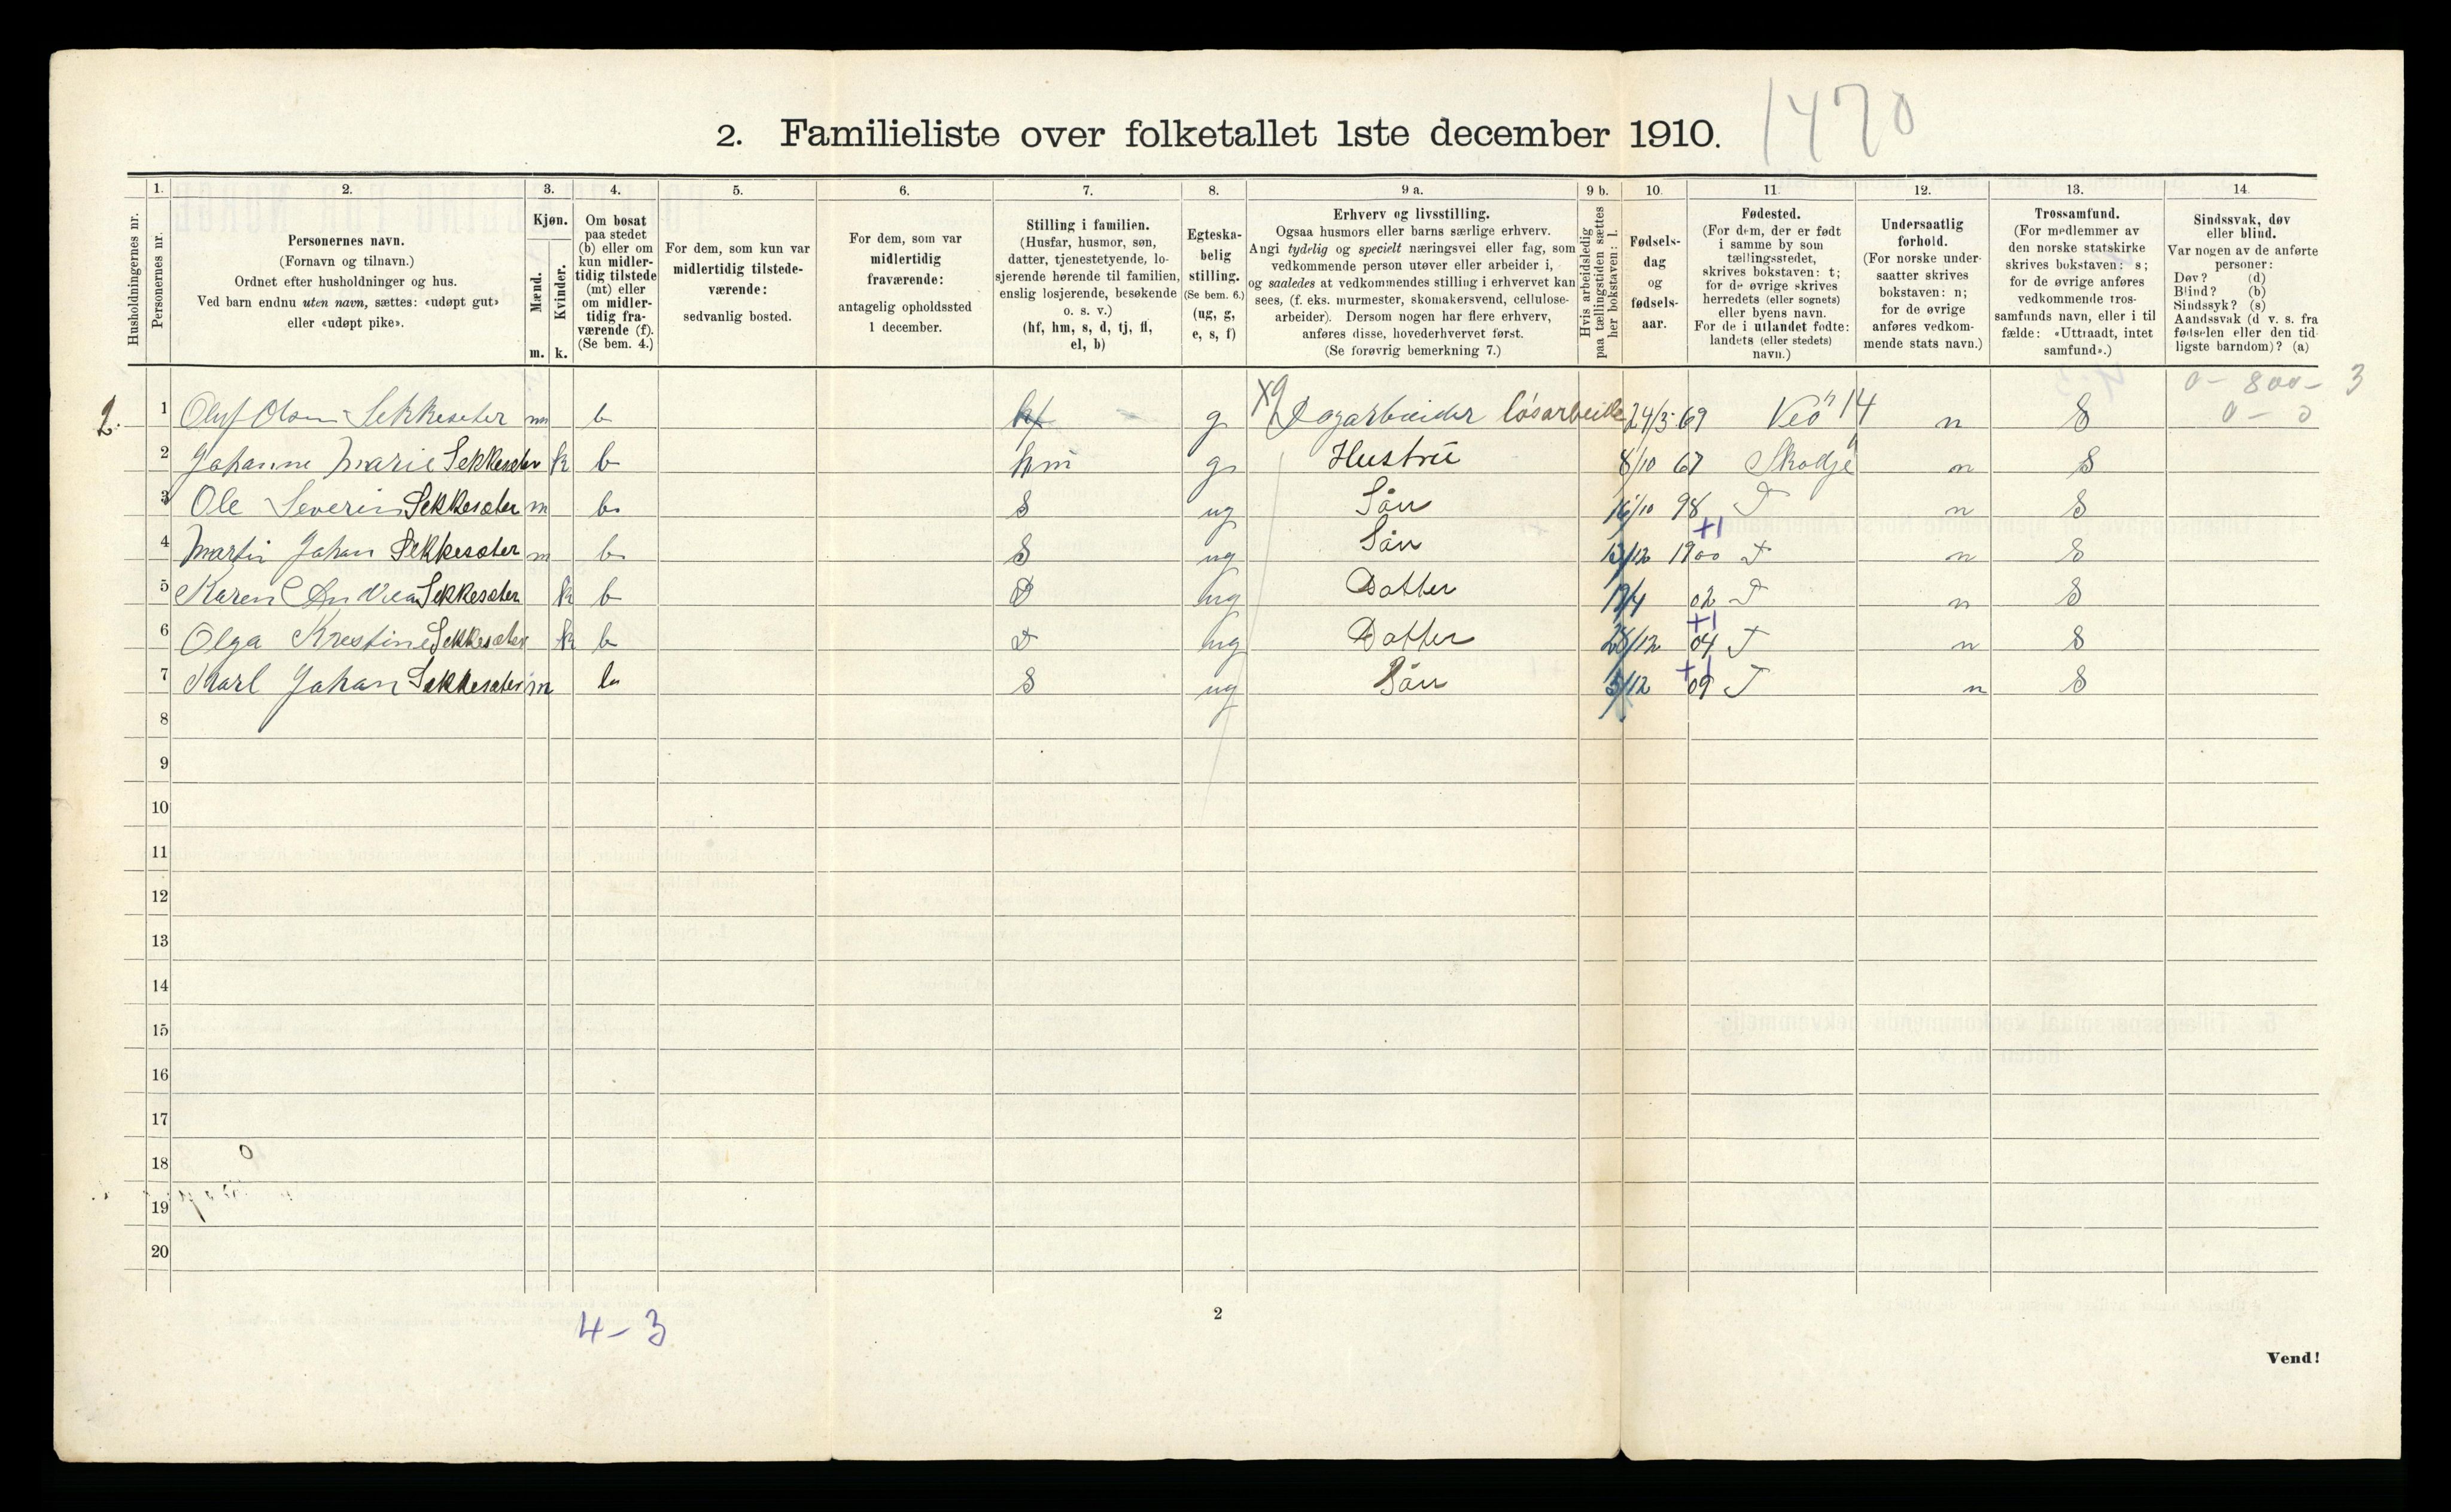 1470
2. Familieliste over folketallet 1ste december 1910.
1. 2. 3. 4. 5. 6. 7. 8. 9 a. 9 b. 10. 11 12. 13. 14.
Husholdningernes nr.
Personernes nr.
Personernes navn.
(Fornavn og tilnavn.)
Ordnet efter husholdninger og hus.
Ved barn endnu uten navn, sættes: «udøpt gut»
eller «udøpt pike».
Kjøn.
Mænd.
m.
Kvinder.
k.
Om bosat
paa stedet
(b) eller om
kun midler-
tidig tilstede
(mt) eller
om midler-
tidig fra-
værende (f).
(Se bem. 4.)
For dem, som kun var
midlertidig tilstede-
værende:
sedvanlig bosted.
For dem, som var
midlertidig
fraværende:
antagelig opholdssted
1 december.
Stilling i familien.
(Husfar, husmor, søn,
datter, tjenestetyende, lo-
sjerende hørende til familien,
enslig losjerende, besøkende
o. s. v.)
(hf, hm, s, d, tj, fl,
el, b)
Egteska-
belig
stilling.
(Se bem. 6.)
(ug, g,
e, s, f)
Erhverv og livsstilling.
Ogsaa husmors eller barns særlige erhverv.
Angi tydelig og specielt næringsvei eller fag, som
vedkommende person utøver eller arbeider i,
og saaledes at vedkommendes stilling i erhvervet kan
sees, (f. eks. murmester, skomakersvend, cellulose-
arbeider). Dersom nogen har flere erhverv,
anføres disse, hovederhvervet først.
(Se forøvrig bemerkning 7.)
Hvis arbeidsledig
paa tællingstiden sættes
her bokstaven: l.
Fødsels-
dag
og
fødsels-
aar.
Fødested.
(For dem, der er født
i samme by som
tællingsstedet,
skrives bokstaven: t;
for de øvrige skrives
herredets (eller sognets)
eller byens navn.
For de i utlandet fødte:
landets (eller stedets)
navn.)
Undersaatlig
forhold.
(For norske under-
saatter skrives
bokstaven: n;
for de øvrige
anføres vedkom-
mende stats navn.)
Trossamfund.
(For medlemmer av
den norske statskirke
skrives bokstaven: s;
for de øvrige anføres
vedkommende tros-
samfunds navn, eller i til
fælde: «Uttraadt, intet
samfund».)
Sindssvak, døv
eller blind.
Var nogen av de anførte
personer:
Døv? (d)
Blind? (b)
Sindssyk? (s)
Aandssvak (d v. s. fra
fødselen eller den tid
ligste barndom)? (a)
0 - 800 - 3
2. 1 Oluf Olsen Sekkeseter m b hf g Dagarbeider løsarbeide 24/3 69 Veö 14 n S 0 - 0
2 Johanne Marie Sekkesæter k b hm g Hustrü 8/10 67 Skodje n S
3 Ole Severin Sekkesæter m b s ug Sön 16/10 98 T n S
+1
4 Martin Johan Sekkesæter m b s ug Sön 13/12 1900 T n S
5 Karen Andrea Sekkesæter k b D ug Datter 19/4 02 T n S
+1
6 Olga Krestine Sekkesæter k b d ug Datter 28/12 04 T n S
+1
7 Karl Johan Sekkesæter m b s ug Sön 3/12 09 T n S
8
9
10
11
12
13
14
15
16
17
18
19
20
4 - 3
2
Vend!